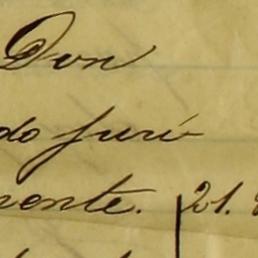 Don
do juró
mente. 21.